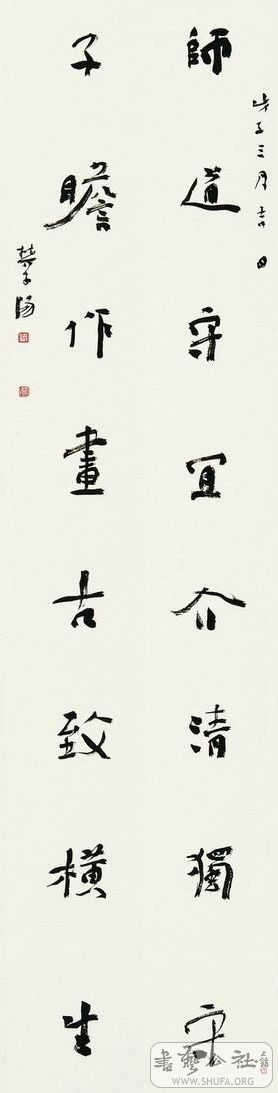 戊子三月吉日
師道 介清獨守
子瞻作畫古致橫生
書藝公社
WWW.SHUFA.ORG